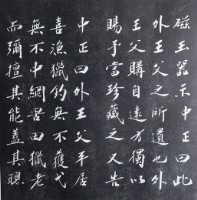 磁玉器示中正曰此
外王父之所遺也外
王父購自遠方獨以
賜予當珍藏之又告
中正曰外王父平居
喜漁獵的無不應弋
無不中網罟田獵老
而彌擅其能蓋其聰